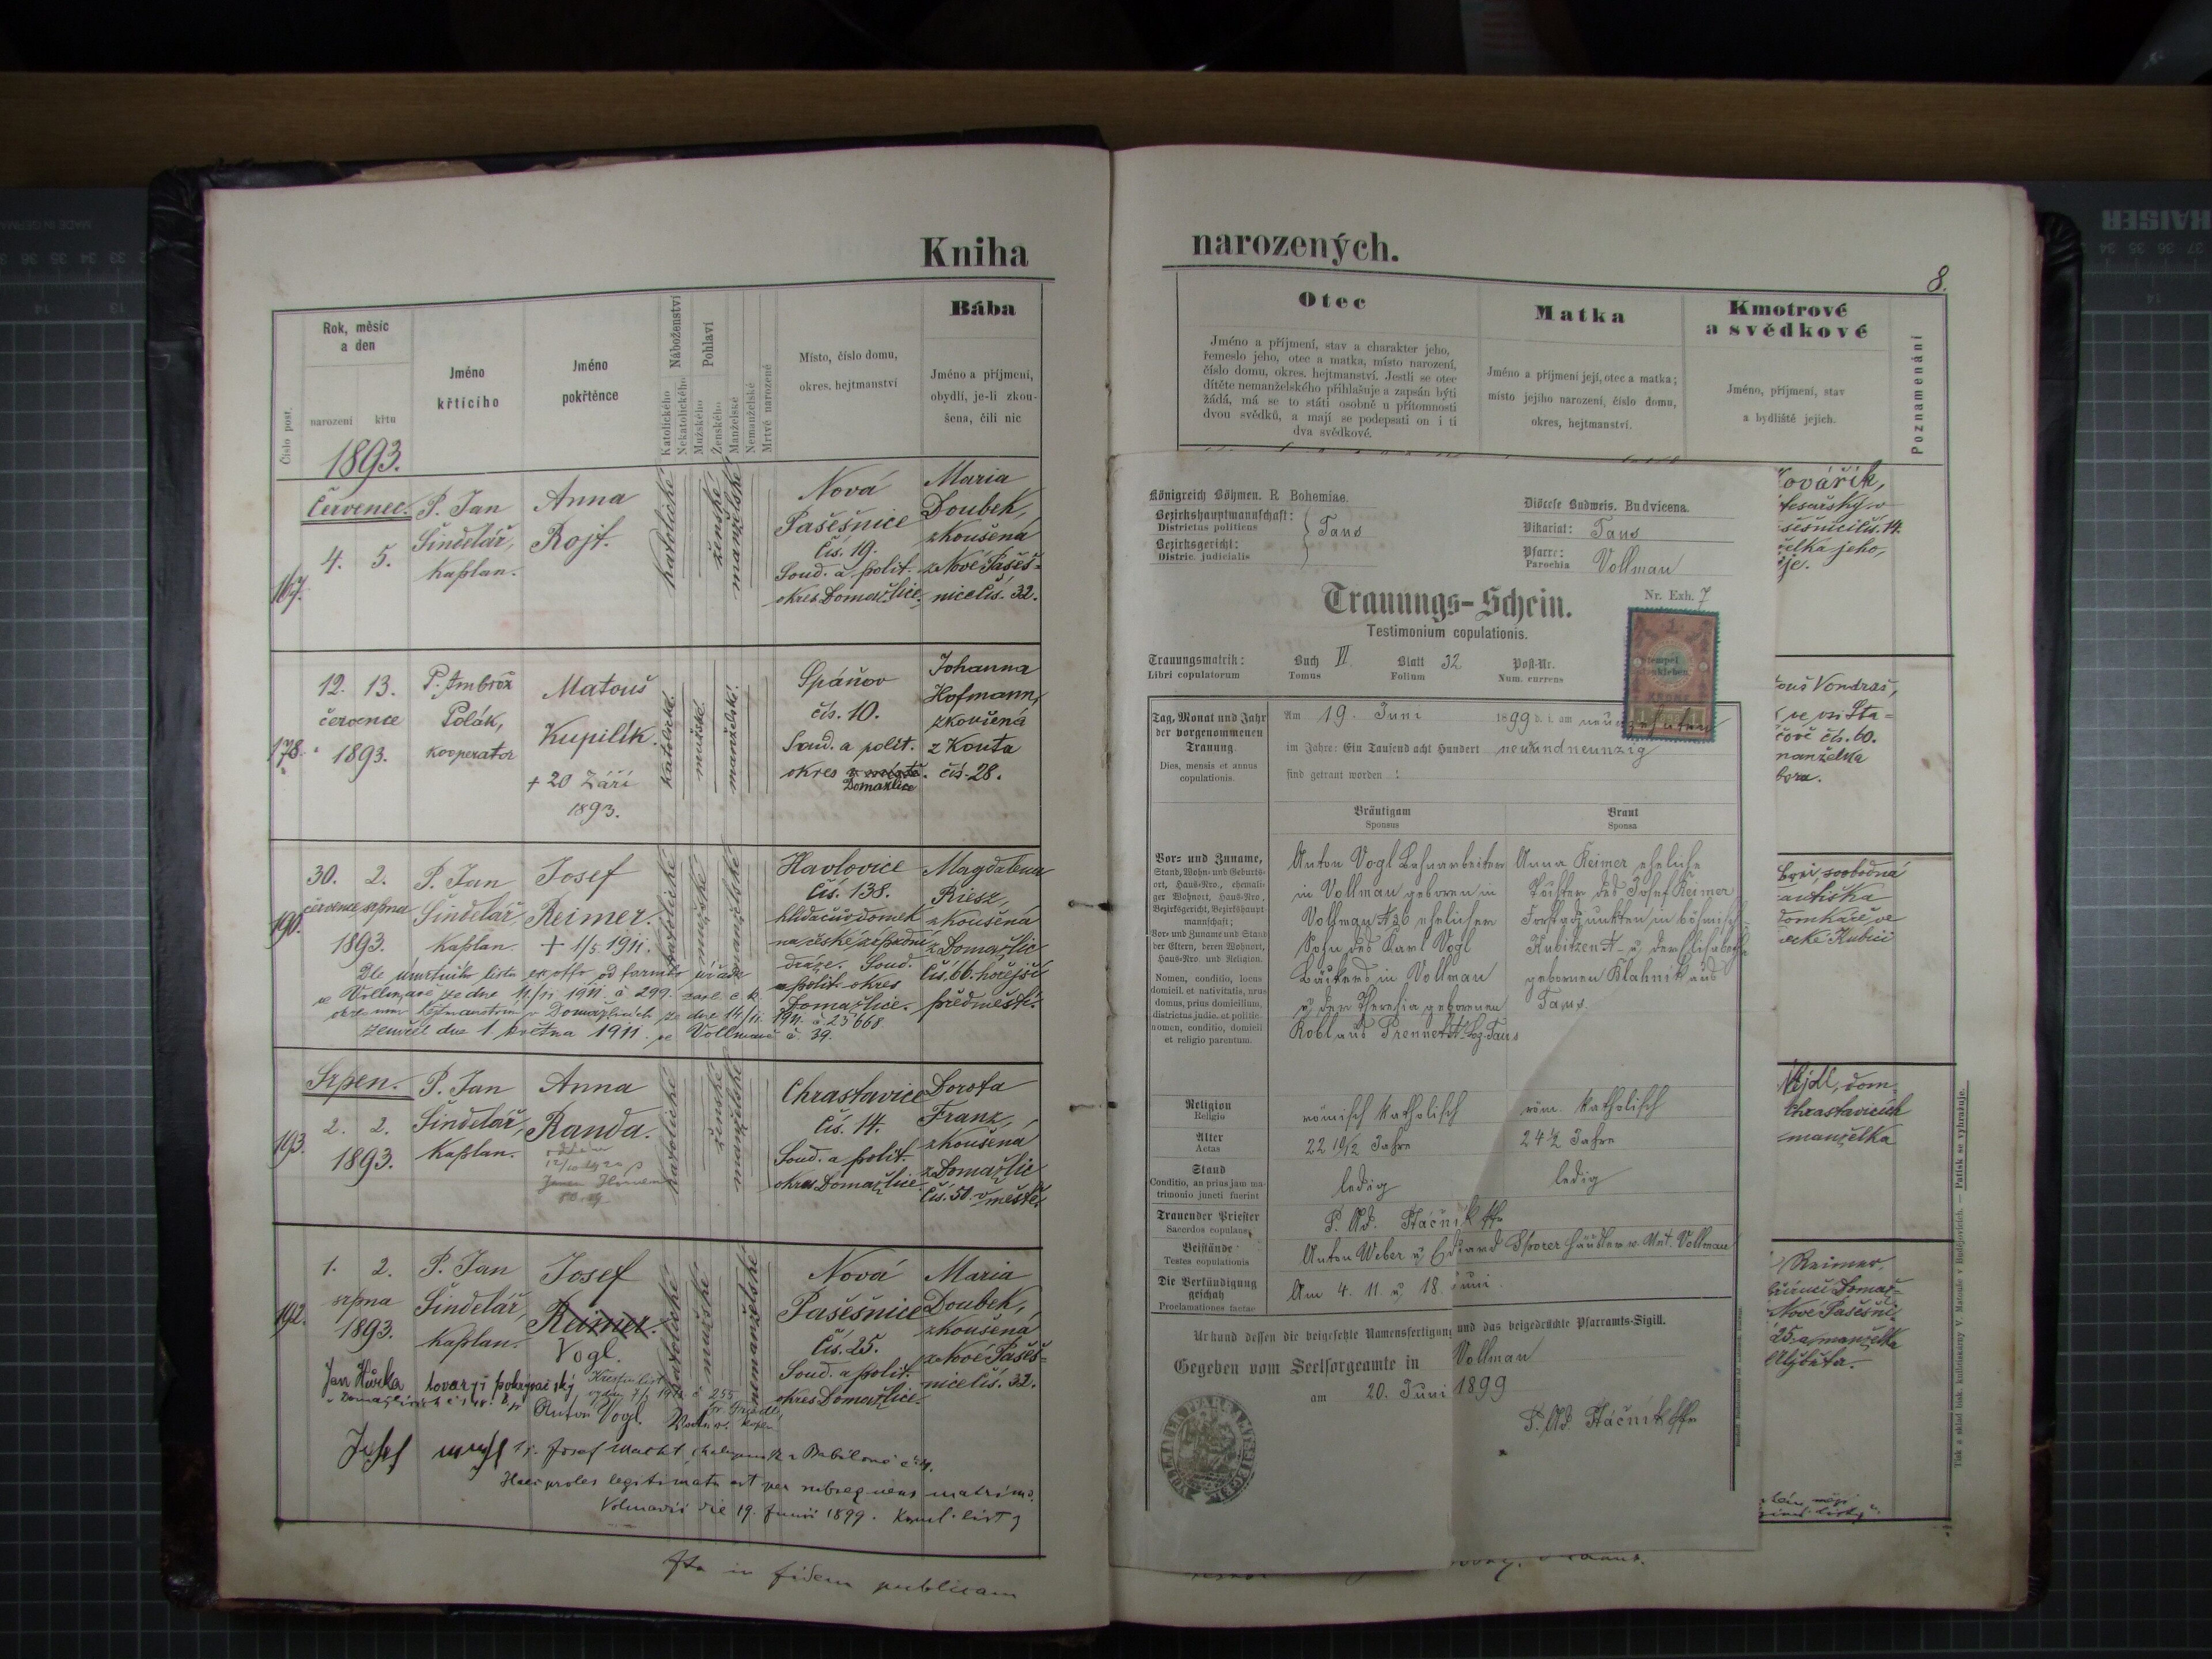 MADE IN GERMANY
KAISER
Kniha
Rok, měsíc
a den
narození
křtu
Číslo post.
Jméno
křtícího
Jméno
pokřtěnce
Náboženství
Katolického
Nekatolického
Pohlaví
Mužského
Ženského
Manželské
Nemanželské
Mrtvě narozené
Místo, číslo domu,
okres, hejtmanství
Bába
Jméno a příjmení,
obydlí, je-li zkou-
šena, čili nic
1893.
167.
Červenec.
4. 5.
P. Jan
Šindelář,
kaplan.
Anna
Rojt.
katolické
ženské
manželské
Nová
Pašešnice
čís. 19.
Soud. a polit.
okres Domažlice.
Maria
Doubek,
zkoušená
z Nové Pašeš-
nice čís. 32.
178.
12. 13.
července
1893.
P. Ambrož
Polák,
kooperator
Matouš
Kupilík.
+ 20 Září
1893.
katolické
mužské
manželské
Spáňov
čís. 10.
Soud. a polit.
okres
Domažlice
Johanna
Hofmann,
zkoušená
z Kouta
čís. 28.
190.
30. 2.
července srpna
1893.
P. Jan
Šindelář,
kaplan.
Josef
Reimer.
+ 1/5 1911.
katolické
mužské
manželské
Havlovice
čís. 138.
hlídačův domek
na české západní
dráze. Soud.
a polit. okres
Domažlice.
Magdalena
Riesz,
zkoušená
z Domažlic
čís. 66. hořejší
předměstí.
Dle úmrtního listu ex offo od farního úřadu
ve Vollmavě ze dne 11/11 1911 č 299. zasl. c. k.
okresním hejtmanstvím v Domažlicích ze dne 14/11. 1911. č 23668
zemřel dne 1. května 1911 ve Vollmavě č. 39.
193.
Srpen.
2. 2.
1893.
P. Jan
Šindelář,
kaplan.
Anna
Randa.
katolické
ženské
manželské
Chrastavice
čís. 14.
Soud. a polit.
okres Domažlice.
Dorota
Franz,
zkoušená
z Domažlic
čís. 50. v městě.
192.
1. 2.
srpna
1893.
P. Jan
Šindelář,
kaplan.
Josef
Reimer.
Vogl.
katolické
mužské
nemanželské
Nová
Pašešnice
čís. 25.
Soud. a polit.
okres Domažlice.
Maria
Doubek,
zkoušená
z Nové Pašeš-
nice čís. 32.
Jan Hůrka tovaryš pokrývačský
Anton Vogl.
Josef
Josef Macht
Haec proles legitimata est per subsequens matrimo.
Volmavii die 19. Junii 1899.
Ita in fidem publicam
narozených.
8.
Otec
Jméno a příjmení, stav a charakter jeho,
řemeslo jeho, otec a matka, místo narození,
číslo domu, okres, hejtmanství. Jestli se otec
dítěte nemanželského přihlašuje a zapsán býti
žádá, má se to státi osobně u přítomnosti
dvou svědků, a mají se podepsati on i ti
dva svědkové.
Matka
Jméno a příjmení její, otec a matka;
místo jejího narození, číslo domu,
okres, hejtmanství.
Kmotrové
a svědkové
Jméno, příjmení, stav
a bydliště jejich.
Poznamenání
Königreich Böhmen. R. Bohemiae.
Bezirkshauptmannschaft:
Districtus politicus
Bezirksgericht:
Distric. judicialis
Taus
Diöcese Budweis. Budvicena.
Vikariat: Taus
Pfarre:
Parochia
Vollmau
Trauungs-Schein.
Testimonium copulationis.
Nr. Exh. 7
Trauungsmatrik:
Libri copulatorum
Buch VI.
Tomus
Blatt 32
Folium
Post-Nr.
Num. currens
Tag, Monat und Jahr
der vorgenommenen
Trauung
Dies, mensis et annus
copulationis.
Am 19. Juni 1899 d. i. am neunzehnten
im Jahre: Ein Tausend acht Hundert neunundneunzig
find getraut worden:
Bräutigam
Sponsus
Braut
Sponsa
Vor- und Zuname,
Stand, Wohn- und Geburts-
ort, Haus-Nro., ehemali-
ger Wohnort, Haus-Nro,
Bezirksgericht, Bezirkshaupt-
mannschaft;
Vor- und Zuname und Stand
der Eltern, deren Wohnort,
Haus-Nro. und Religion.
Nomen, conditio, locus
domicil. et nativitatis, nrus
domus, prius domicilium,
districtus judic. et politic.
nomen, conditio, domicil
et religio parentum.
Anton Vogl Bahnarbeiter
in Vollmau geboren in
Vollmau № 26 ehelicher
Sohn des Karl Vogl
Bäckers in Vollmau
u. der Theresia gebornen
Kobl aus Prennet
Anna Reimer eheliche
Tochter des Josef Reimer
Forstadjunkten in böhmisch
Kubitzen № u. der Elisabeth
gebornen Klahnik aus
Taus.
Religion
Religio
römisch katholisch
röm. katholisch
Alter
Aetas
22 10/12 Jahre
24 ½ Jahre
Stand
Conditio, an prius jam ma-
trimonio juncti fuerint
ledig
ledig
Trauender Priester
Sacerdos copulans
P. Ad. Ptáčník
Beistände
Testes copulationis
Anton Weber u. Eduard Sporer Häusler v. Unt. Vollmau
Die Verkündigung
geschah
Proclamationes factae
Am 4. 11. u. 18. Juni.
Urkund dessen die beigesetzte Namensfertigung und das beigedrückte Pfarramts-Sigill.
Gegeben vom Seelsorgeamte in Vollmau
am 20. Juni 1899
P. Ad. Ptáčník
Kovářík,
tesařský v
sešnici čís. 14.
jeho,
Vondraš,
čově čís. 60.
manželka
svobodná
domkáře ve
Kubici
dom-
Chrastavicích
manželka
Reimer,
Nové Pašešni-
25. a manželka
Alžběta.
Tisk a sklad bisk. knihtiskárny V. Matouše v Budějovicích. — Patisk se vyhražuje.